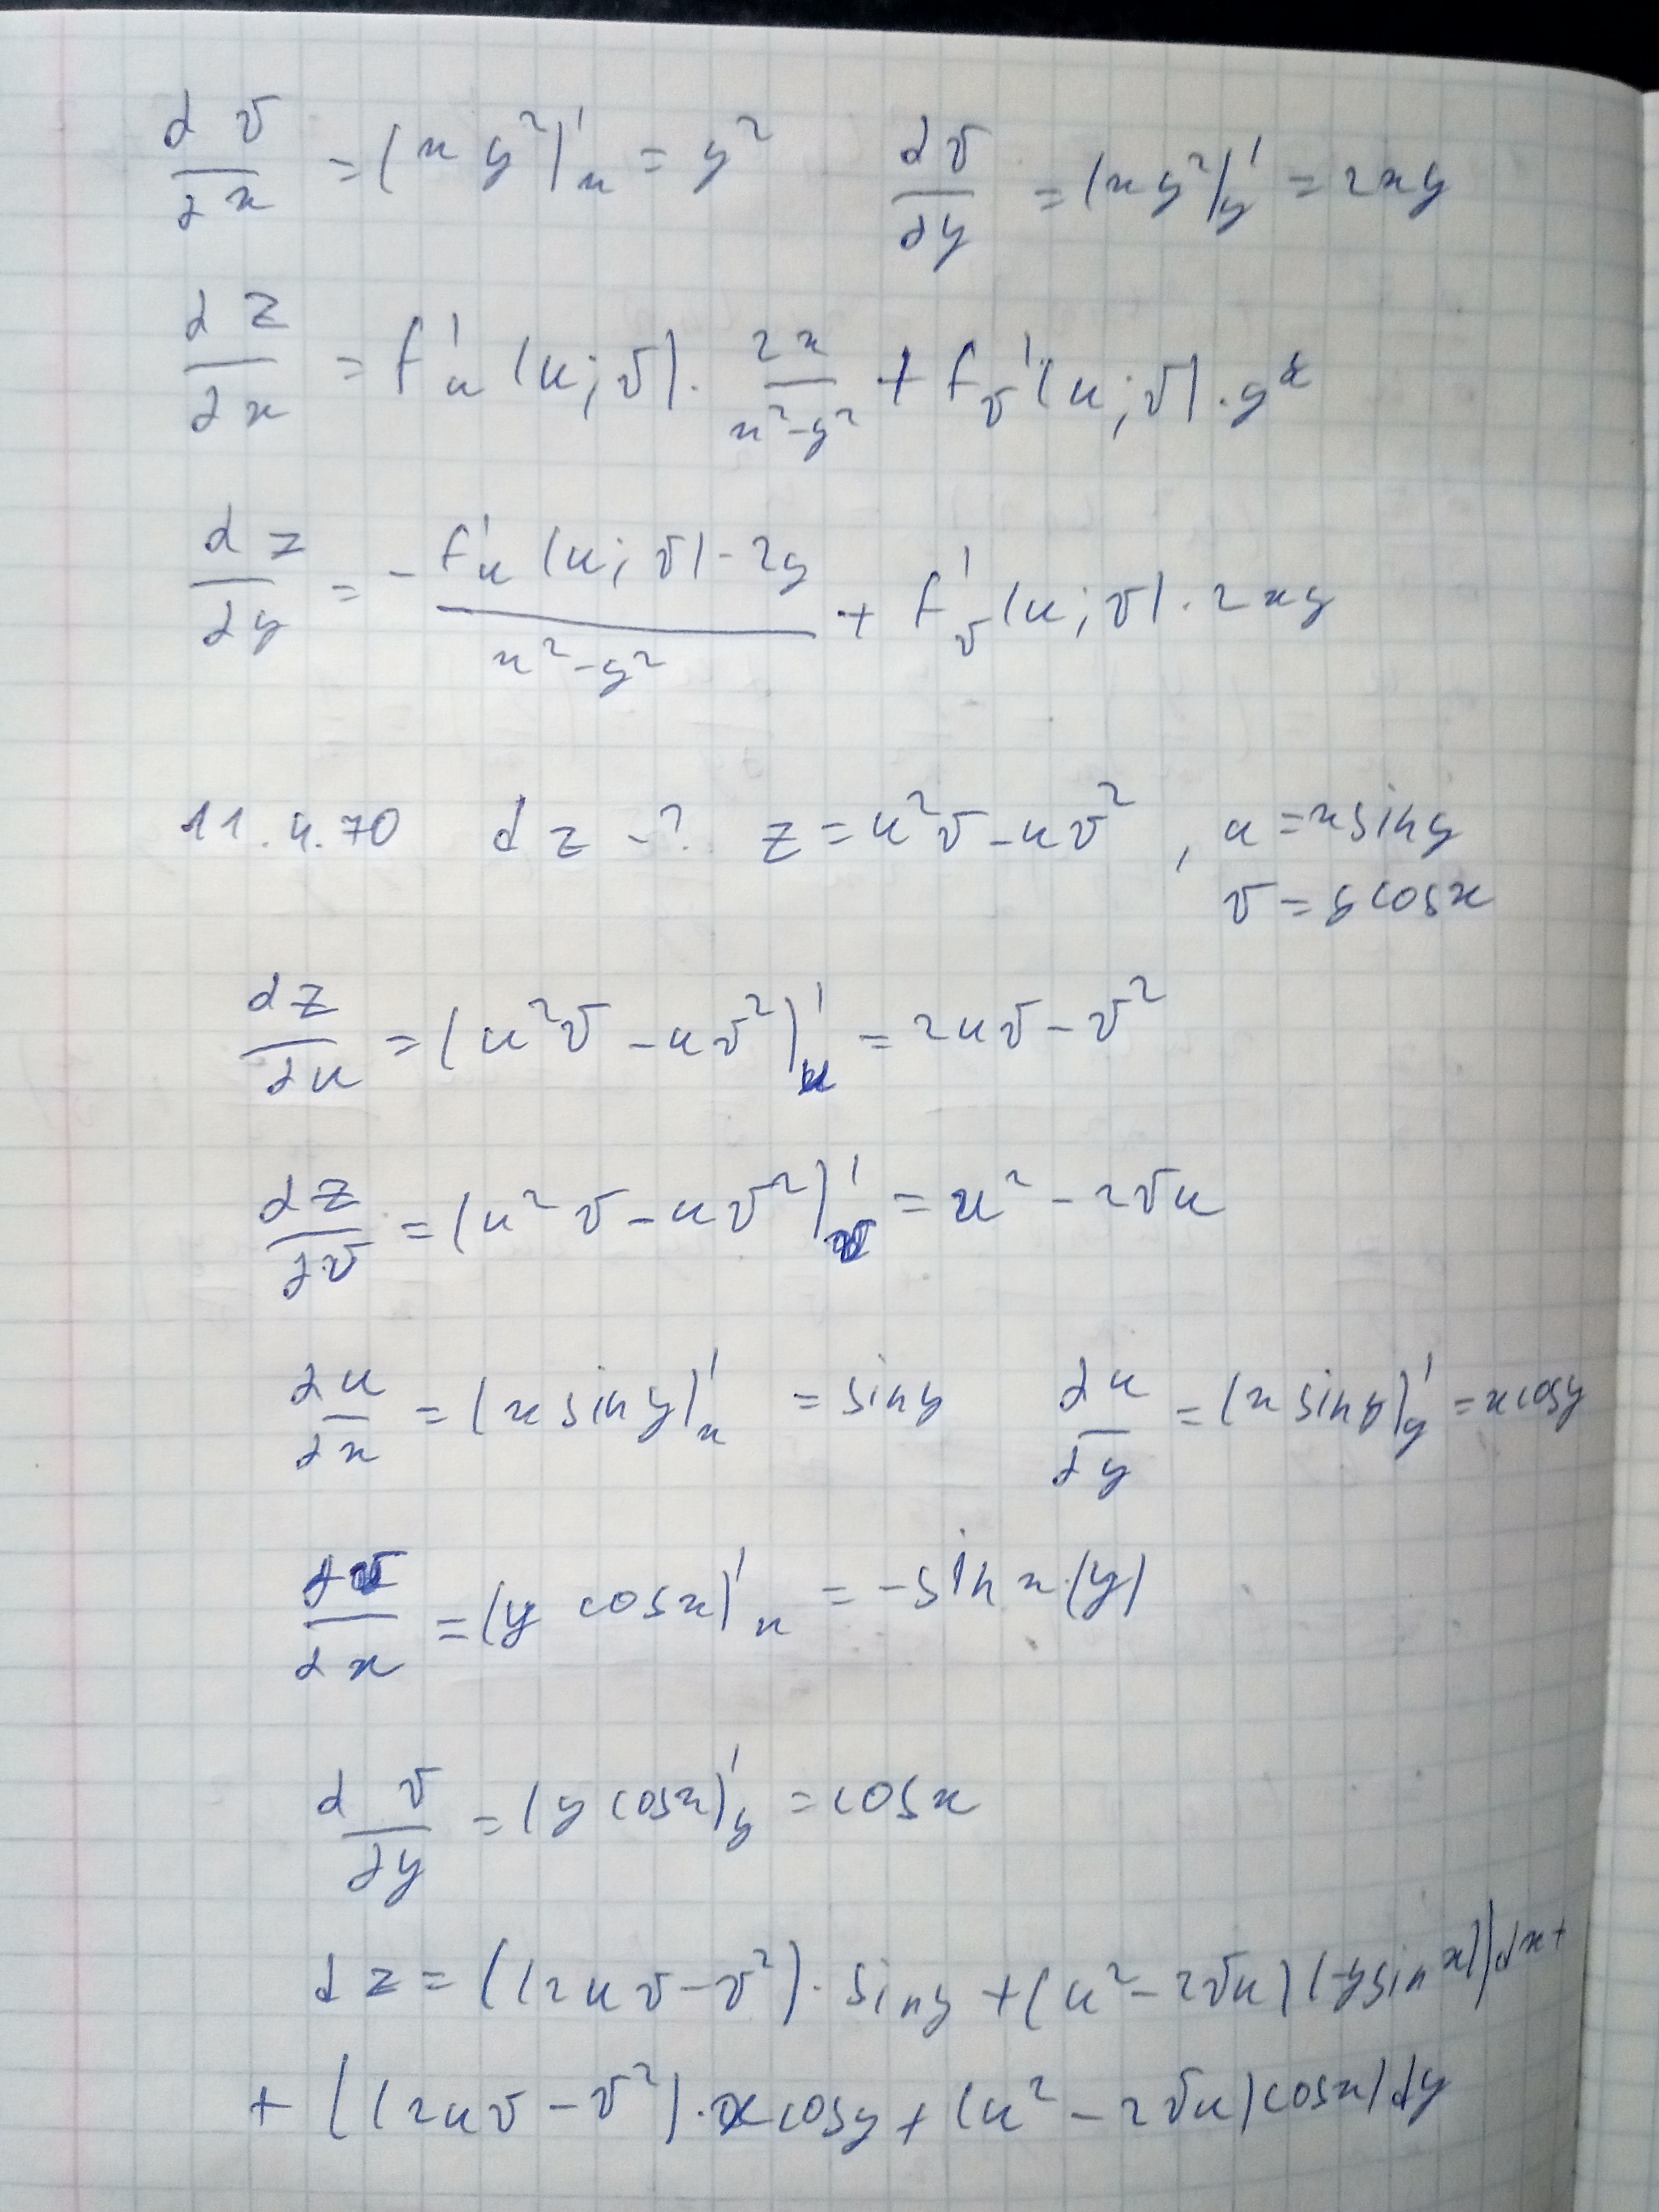 ∂v/∂x = (xy²)'ₓ = y²    ∂v/∂y = (xy²)'_y = 2xy
∂z/∂x = f'_u (u; v) · 2x/(x²-y²) + f'_v (u; v) · y²
∂z/∂y = - (f'_u (u; v) · 2y)/(x²-y²) + f'_v (u; v) · 2xy
11.4.70 dz - ? z = u²v - uv², u = x sin y
v = y cos x
∂z/∂u = (u²v - uv²)'_u = 2uv - v²
∂z/∂v = (u²v - uv²)'_v = u² - 2vu
∂u/∂x = (x sin y)'ₓ = sin y    ∂u/∂y = (x sin y)'_y = x cos y
∂v/∂x = (y cos x)'ₓ = - sin x · (y)
∂v/∂y = (y cos x)'_y = cos x
dz = ((2uv - v²) · sin y + (u² - 2vu)(-y sin x))dx +
+ ((2uv - v²) · x cos y + (u² - 2vu) cos x) dy